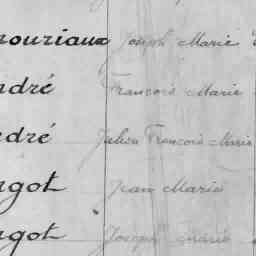 nouriaux Joseph Marie
ndré Francois Marie
ndré Julien Francois Marie
rgot Jean Marie
rgot Joseph Marie